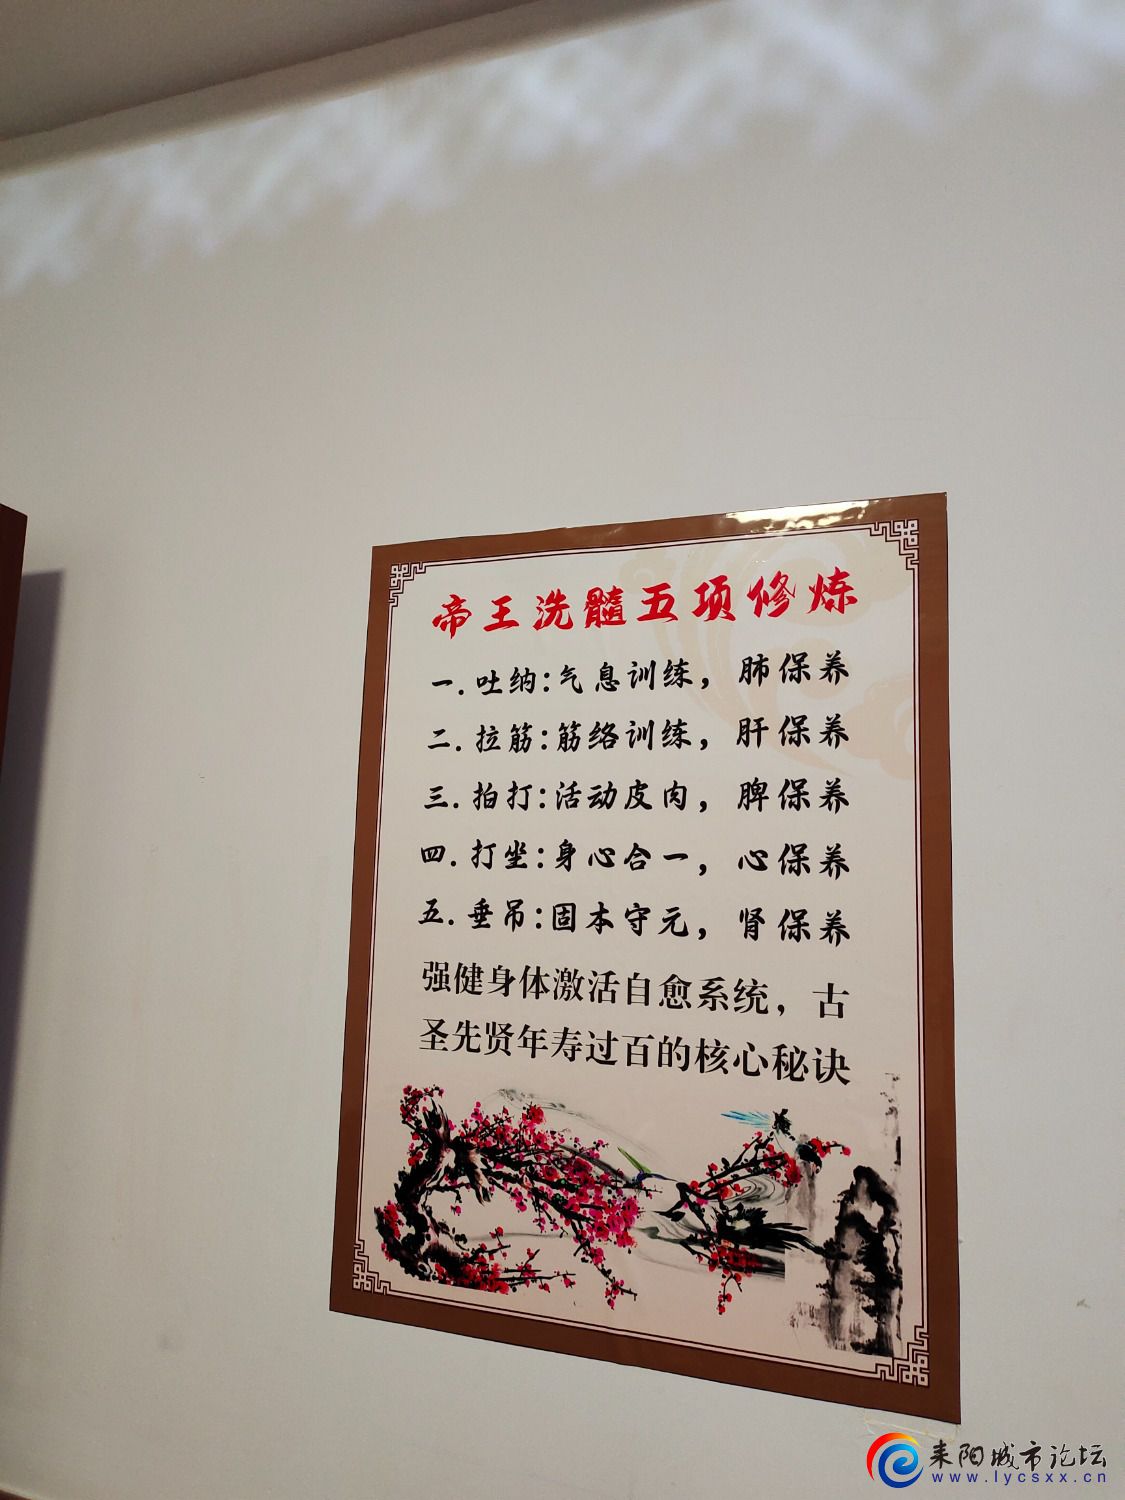 帝王洗髓五项修炼
一.吐纳:气息训练，肺保养
二.拉筋:筋络训练，肝保养
三.拍打:活动皮肉，脾保养
四.打坐:身心合一，心保养
五.垂吊:固本守元，肾保养
强健身体激活自愈系统，古
圣先贤年寿过百的核心秘诀
耒阳城市论坛
www.lycsxx.cn